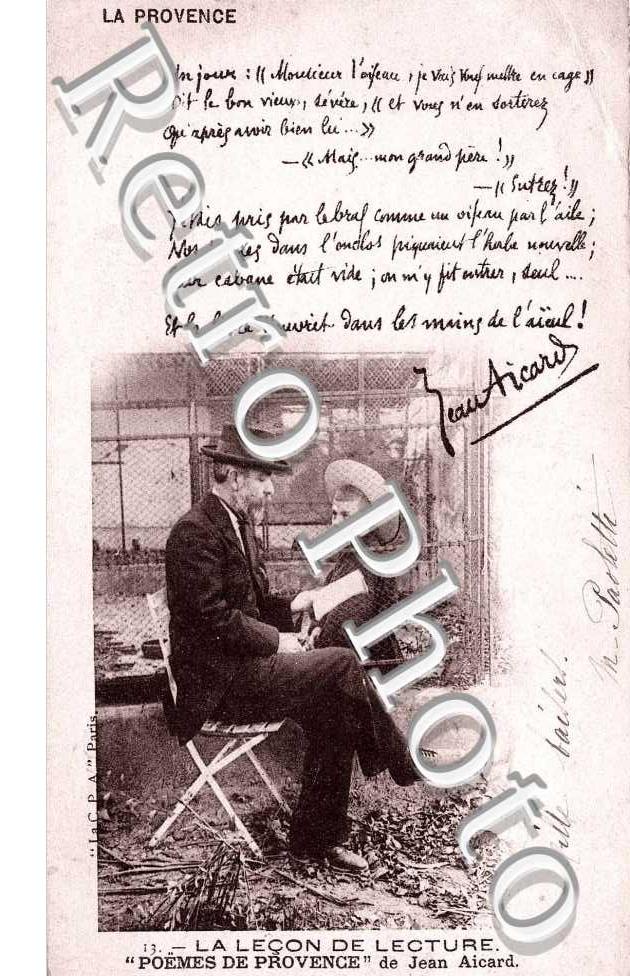 LA PROVENCE
Un jour : « Monsieur l'oiseau, je vais vous mettre en cage »
Dit le bon vieux, sévère, « et vous n'en sortirez
Qu'après avoir bien lu... »
— « Mais... mon grand père ! »
— « Entrez ! »
pris par le bras comme un oiseau par l'aile ;
dans l'enclos piquaient l'herbe nouvelle ;
cabane était vide ; on m'y fit entrer, seul ....
Et le s'ouvrit dans les mains de l'aïeul !
Jean Aicard
Paulette
baisers.
"La C. P. A." Paris.
13. — LA LEÇON DE LECTURE.
"POÈMES DE PROVENCE" de Jean Aicard.
Retro Photo